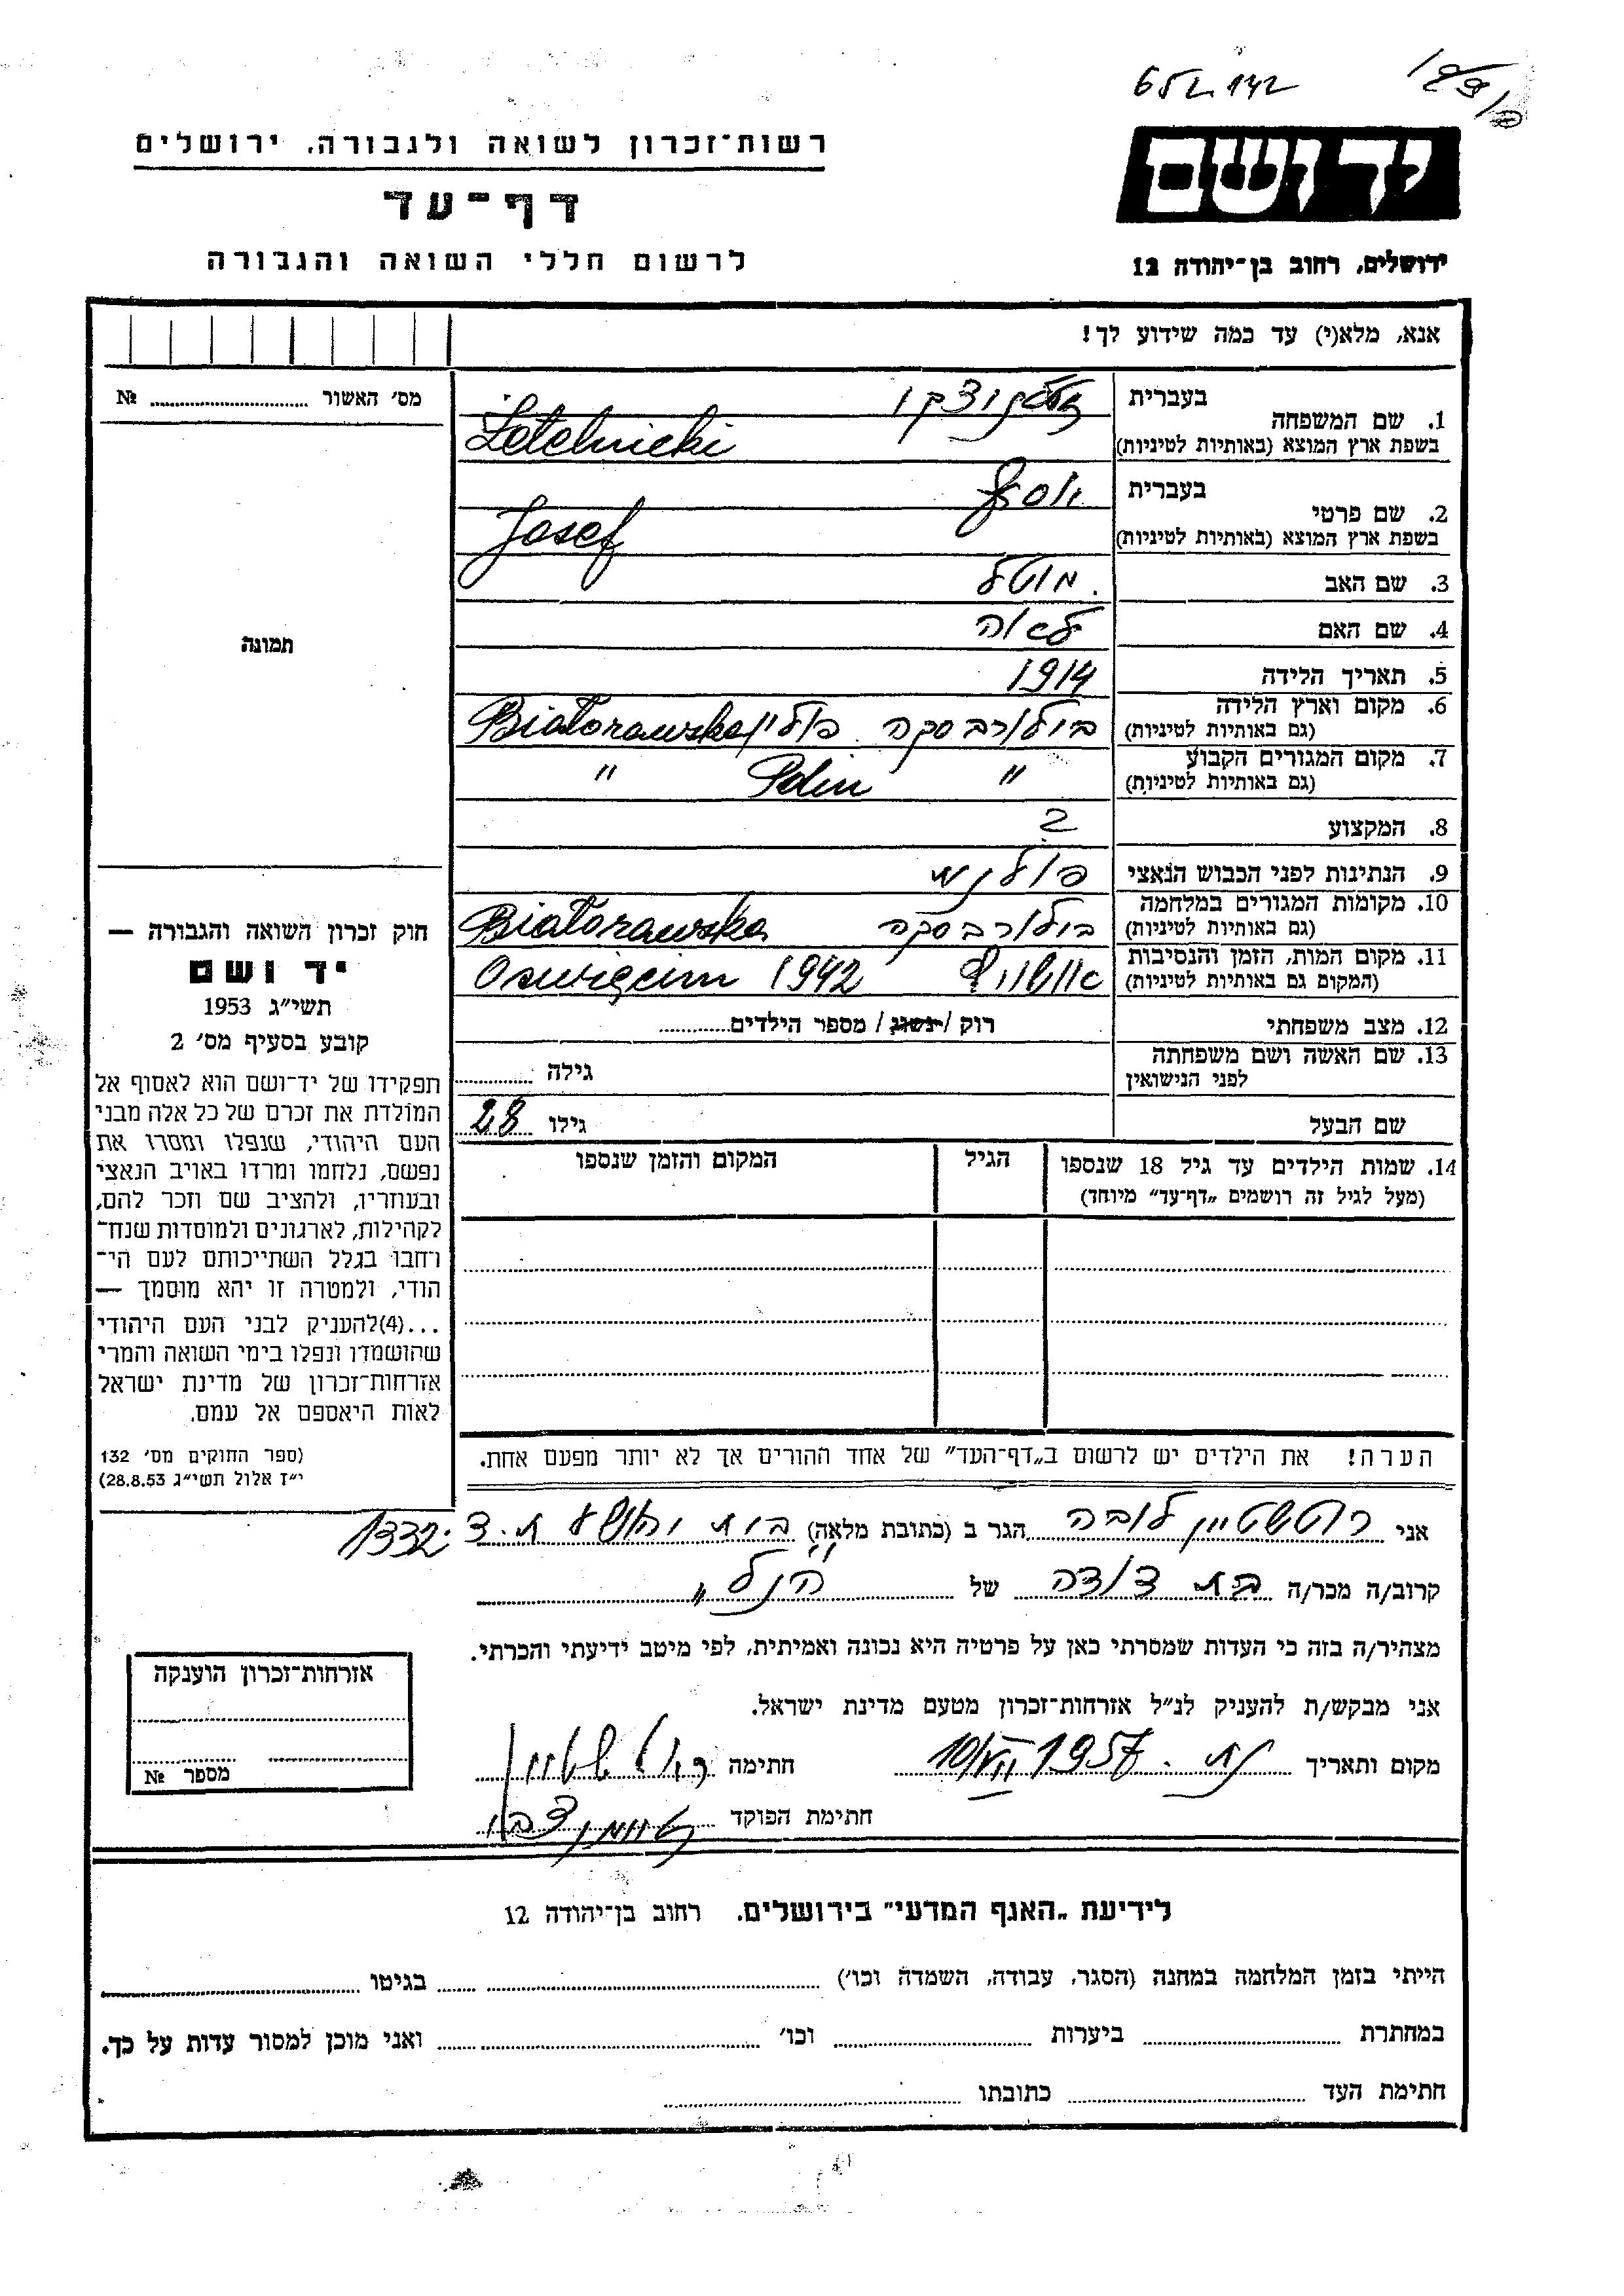 652142
רשות־זכרון לשואה ולגבורה. ירושלים
יד ושם
דף־עד
לרשום חללי השואה והגבורה
ירושלים, רחוב בן־יהודה 12
אנא, מלא(י) עד כמה שידוע לך!
מס׳ האשור № 
1. שם המשפחה בעברית
בשפת ארץ המוצא (באותיות לטיניות)
2. שם פרטי בעברית יוסף
בשפת ארץ המוצא (באותיות לטיניות) Josef
3. שם האב מוטל
4. שם האם לאה
5. תאריך הלידה 1914
6. מקום וארץ הלידה
(גם באותיות לטיניות) בילורבסקה פולין Białorawska
7. מקום המגורים הקבוע
(גם באותיות לטיניות) " Polin "
8. המקצוע ?
9. הנתינות לפני הכבוש הנאצי פולנית
10. מקומות המגורים במלחמה
(גם באותיות לטיניות) בילורבסקה Białorawska
11. מקום המות, הזמן והנסיבות
(המקום גם באותיות לטיניות) אושויץ 1942 Oswięcim
12. מצב משפחתי רוק / נשוי / מספר הילדים
13. שם האשה ושם משפחתה
לפני הנישואין גילה
שם הבעל גילו 28
14. שמות הילדים עד גיל 18 שנספו הגיל המקום והזמן שנספו
(מעל לגיל זה רושמים „דף־עד” מיוחד)
תמונה
חוק זכרון השואה והגבורה —
יד ושם
תשי״ג 1953
קובע בסעיף מס׳ 2
תפקידו של יד־ושם הוא לאסוף אל
המולדת את זכרם של כל אלה מבני
העם היהודי, שנפלו ומסרו את
נפשם, נלחמו ומרדו באויב הנאצי
ובעוזריו, ולהציב שם וזכר להם,
לקהילות, לארגונים ולמוסדות שנח־
רחבו בגלל השתייכותם לעם הי־
הודי, ולמטרה זו יהא מוסמך —
...(4)להעניק לבני העם היהודי
שהושמדו ונפלו בימי השואה והמרי
אזרחות־זכרון של מדינת ישראל
לאות היאספם אל עמם.
(ספר החוקים מס׳ 132
י״ז אלול תשי״ג 28.8.53)
הערה! את הילדים יש לרשום ב„דף־העד” של אחד ההורים אך לא יותר מפעם אחת.
אני רוטשטיין לובה הגר ב (כתובת מלאה) ת.ד. 1332
קרוב/ה מכר/ה בת דודה של הנ"ל
מצהיר/ה בזה כי העדות שמסרתי כאן על פרטיה היא נכונה ואמיתית, לפי מיטב ידיעתי והכרתי.
אני מבקש/ת להעניק לנ״ל אזרחות־זכרון מטעם מדינת ישראל.
מקום ותאריך 1957 חתימה
חתימת הפוקד
אזרחות־זכרון הוענקה
מספר №
לידיעת „האגף המדעי” בירושלים. רחוב בן־יהודה 12
הייתי בזמן המלחמה במחנה (הסגר, עבודה, השמדה וכו׳) בגיטו
במחתרת ביערות וכו׳ ואני מוכן למסור עדות על כך.
חתימת העד כתובתו